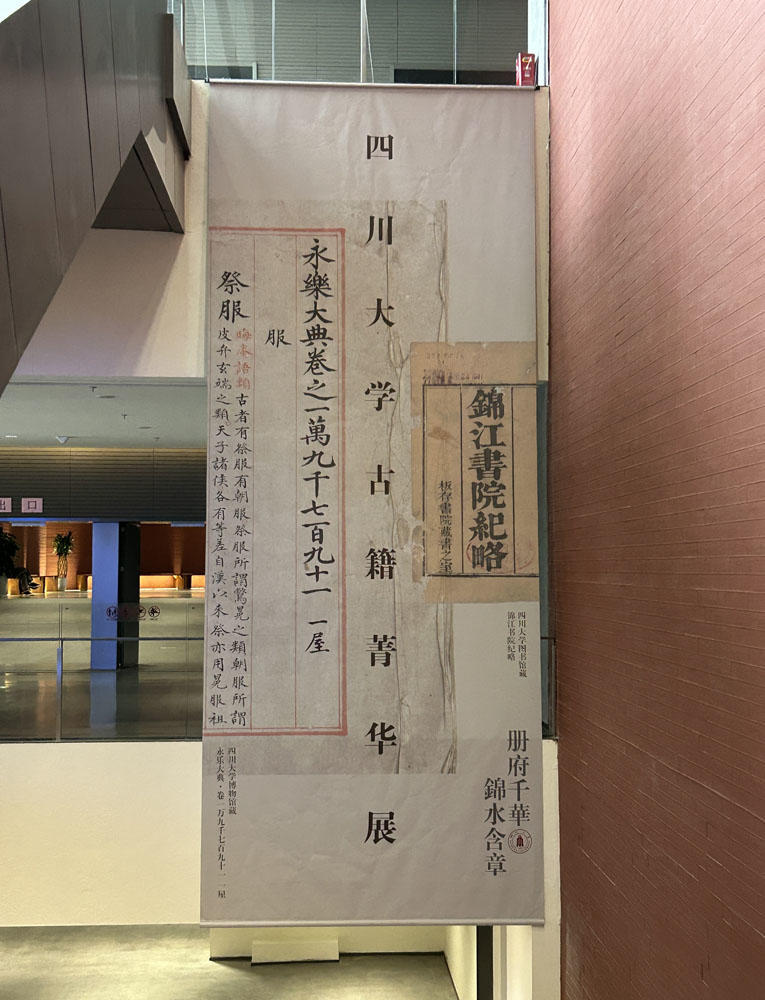 四川大学古籍菁华展
永樂大典卷之一萬九千七百九十一 一屋
服
祭服
晦庵語類古者有祭服有朝服祭服所謂鷩冕之類朝服所謂
皮弁玄端之類天子諸侯各有等差自漢以来祭亦用冕服祖
錦江書院紀略
板存書院藏書之室
四川大学图书馆藏
锦江书院纪略
册府千華
錦水含章
四川大学博物馆藏
永乐大典·卷一万九千七百九十一 一屋
出口